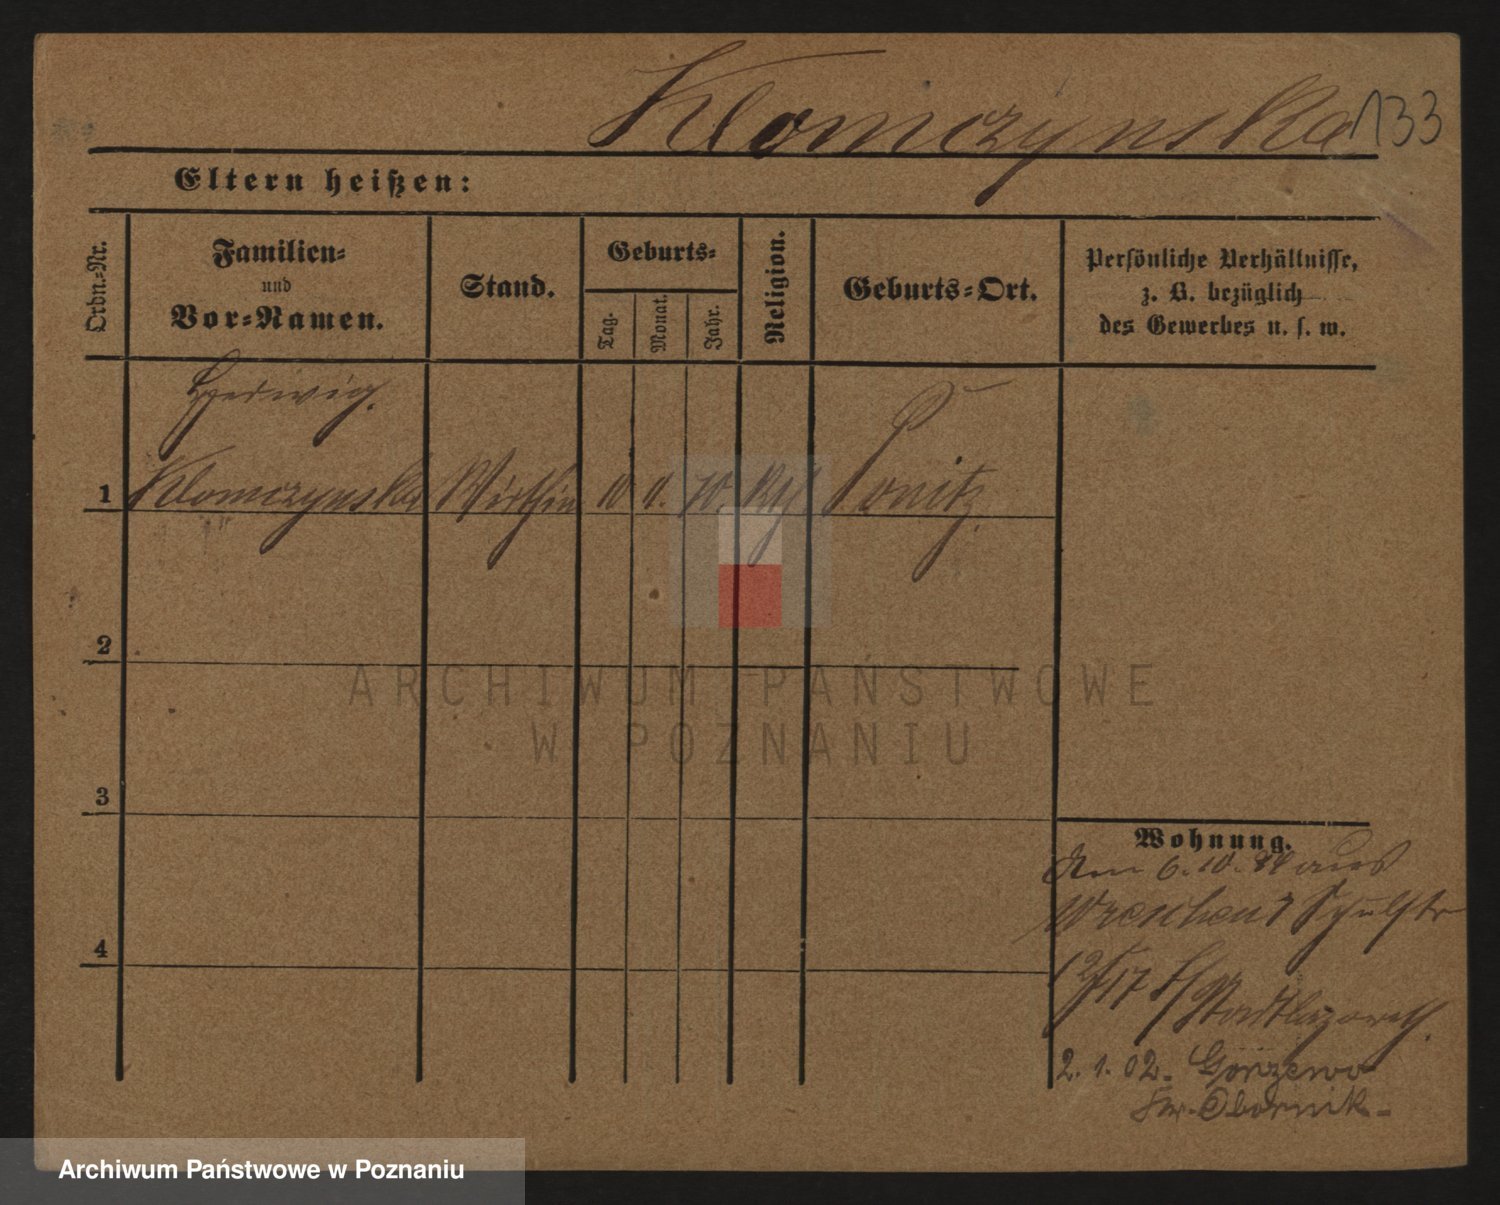 Klomczynska 133
Eltern heißen:
Ordn.-Nr.
Familien-
und
Vor-Namen.
Stand.
Geburts-
Tag.
Monat.
Jahr.
Religion.
Geburts-Ort.
Persönliche Verhältnisse,
z. B. bezüglich
des Gewerbes u. s. w.
Hedwig.
1 Klomczynska Wirthin 10 70. Ponitz.
2
3
4
Wohnung.
Am 6. 10. aus
Wreschen
12/17 Stadtlazareth.
2. 1. 02. Gorzewo
Obornik.
ARCHIWUM PAŃSTWOWE
W POZNANIU
Archiwum Państwowe w Poznaniu